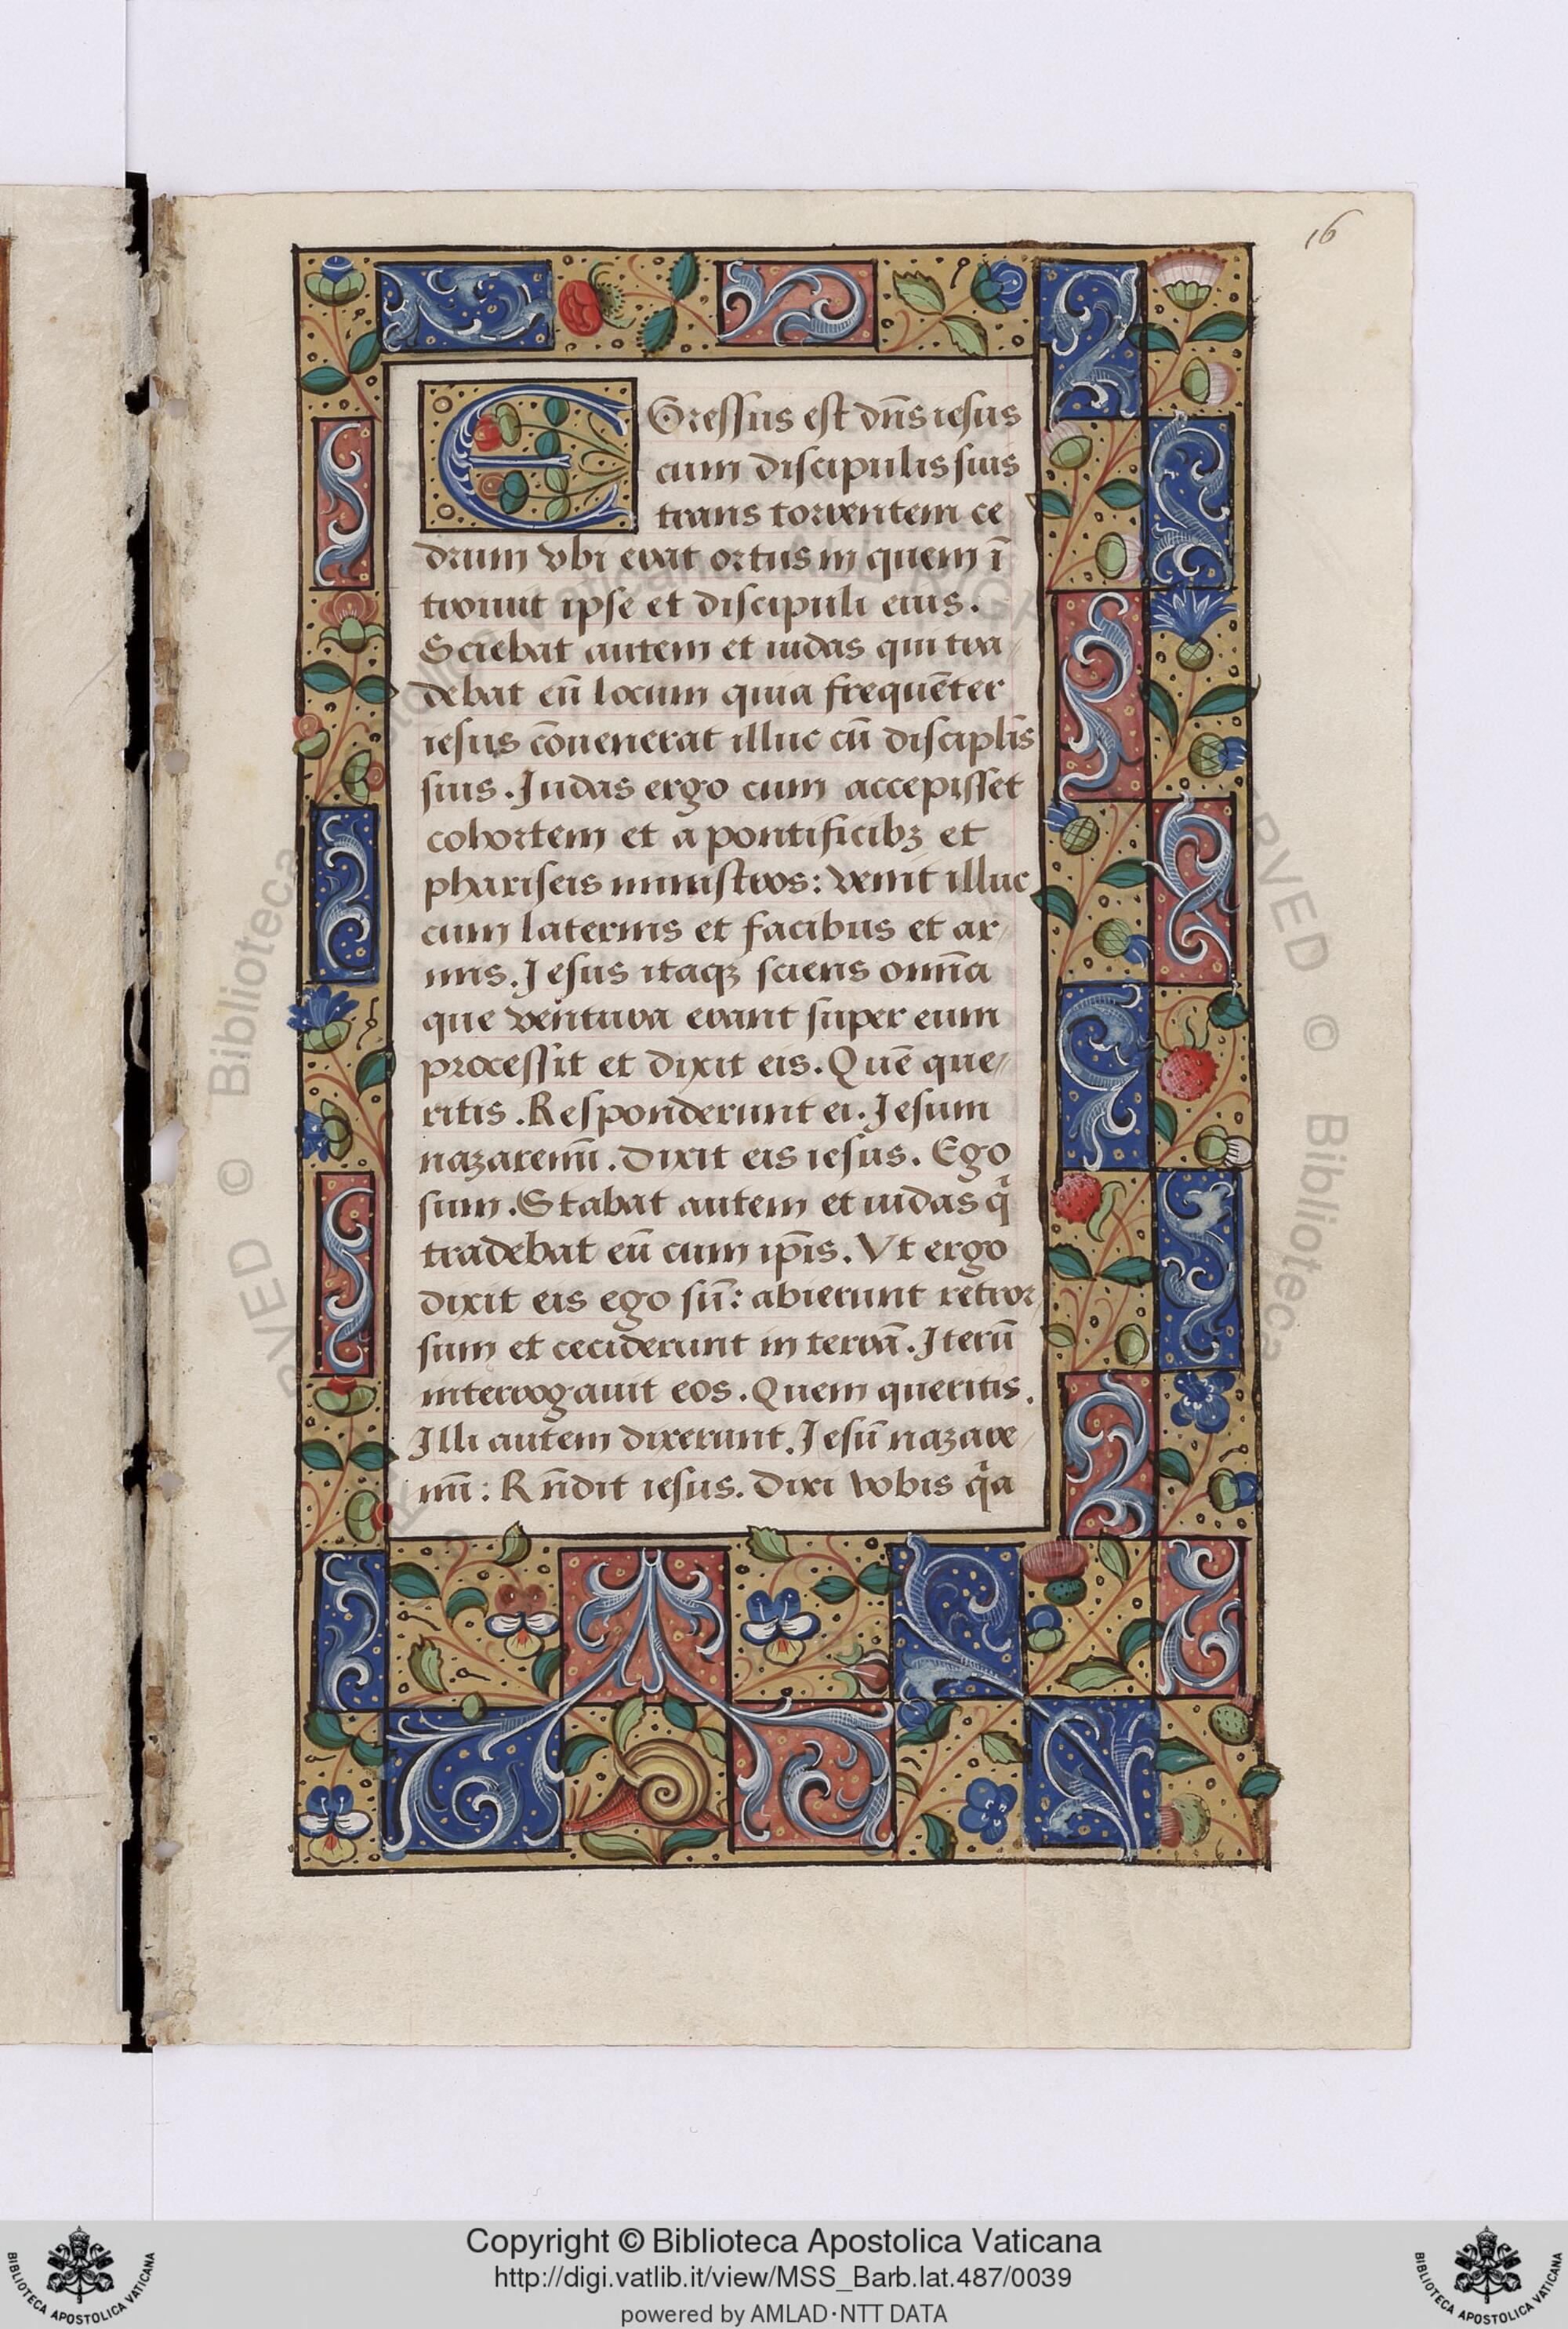 16
EGressus est dñs iesus
cum discipulis suis
trans torrentem ce
drum vbi erat ortus in quem ī
troiuit ipse et discipuli eius.
Sciebat autem et iudas qui tra
debat eū locum quia frequēter
iesus cōuenerat illuc cū disciplīs
suis. Iudas ergo cum accepisset
cohortem et a pontificibꝫ et
phariseis ministros: venit illuc
cum laternis et facibus et ar
mis. Iesus itaqꝫ sciens omīa
que ventura erant super eum
processit et dixit eis. Quē que
ritis. Responderunt ei. Iesum
nazarenū. Dixit eis iesus. Ego
sum. Stabat autem et iudas qͥ
tradebat eū cum ip̄is. Vt ergo
dixit eis ego sū: abierunt retror
sum et ceciderunt in terrā. Iterū
interrogauit eos. Quem queritis.
Illi autem dixerunt. Iesū nazare
nū: Rñdit iesus. Dixi vobis qͥa
RVED © Biblioteca
RVED © Biblioteca
Copyright © Biblioteca Apostolica Vaticana
http://digi.vatlib.it/view/MSS_Barb.lat.487/0039
powered by AMLAD·NTT DATA
BIBLIOTECA APOSTOLICA VATICANA
BIBLIOTECA APOSTOLICA VATICANA